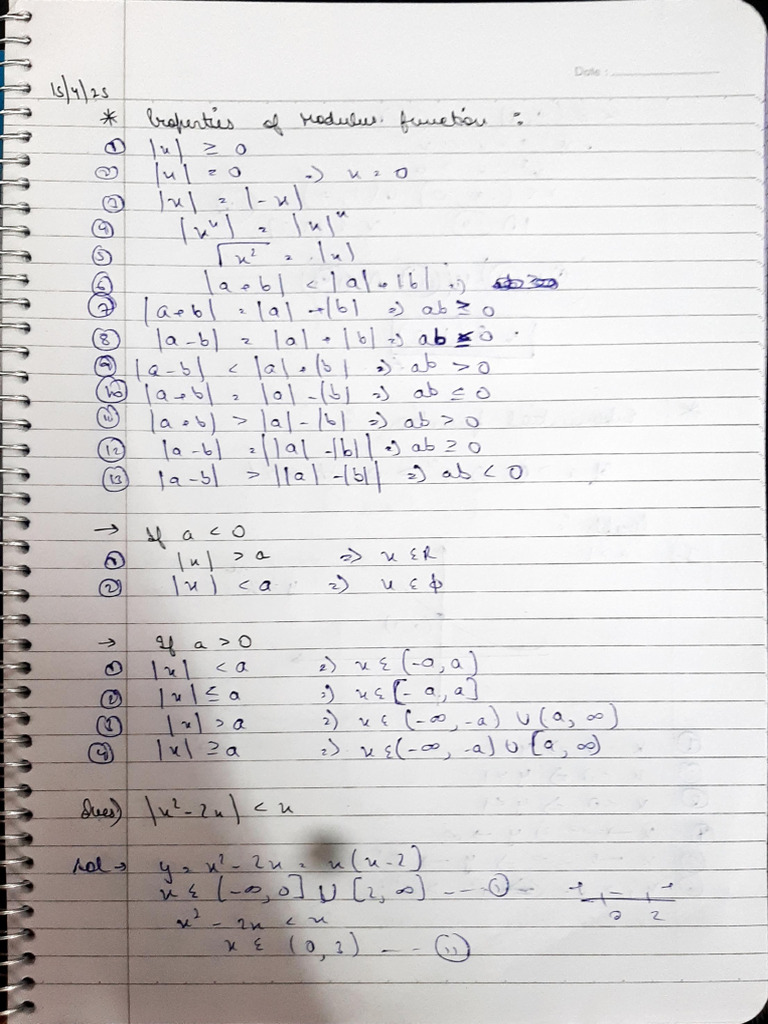 Date :
15/4/25
* Properties of Modulus function :
① |x| ≥ 0
② |x| = 0 => x = 0
③ |x| = |-x|
④ |xⁿ| = |x|ⁿ
⑤ √x² = |x|
⑥ |a+b| < |a|+|b| =>
⑦ |a+b| = |a|+|b| => ab ≥ 0
⑧ |a-b| = |a|+|b| => ab ≤ 0
⑨ |a-b| < |a|+|b| => ab > 0
⑩ |a+b| = |a|-|b| => ab ≤ 0
⑪ |a+b| > |a|-|b| => ab > 0
⑫ |a-b| = ||a|-|b|| => ab ≥ 0
⑬ |a-b| > ||a|-|b|| => ab < 0
→ If a < 0
① |x| > a => x ∈ R
② |x| < a => x ∈ ϕ
→ If a > 0
① |x| < a => x ∈ (-a, a)
② |x| ≤ a => x ∈ [-a, a]
③ |x| > a => x ∈ (-∞, -a) ∪ (a, ∞)
④ |x| ≥ a => x ∈ (-∞, -a) ∪ [a, ∞)
Ques) |x²-2x| < x
Sol → y = x²-2x = x(x-2)
x ∈ (-∞, 0] ∪ [2, ∞) --- ① + - +
0 2
x² - 2x < x
x ∈ (0, 3) --- ⑪